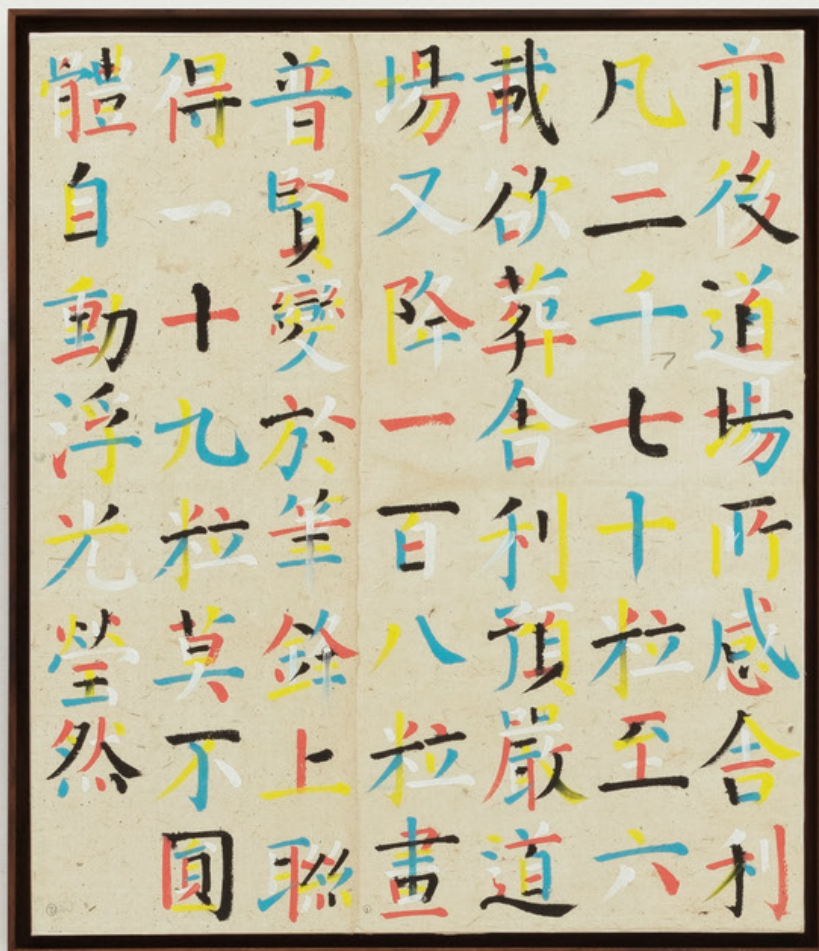 前後道場所感舍利
凡二千七十粒至六
載欲葬舍利預嚴道
場又降一百八粒畫
普賢變於筆鋒上聯
得一十九粒莫不圓
體自動浮光瑩然